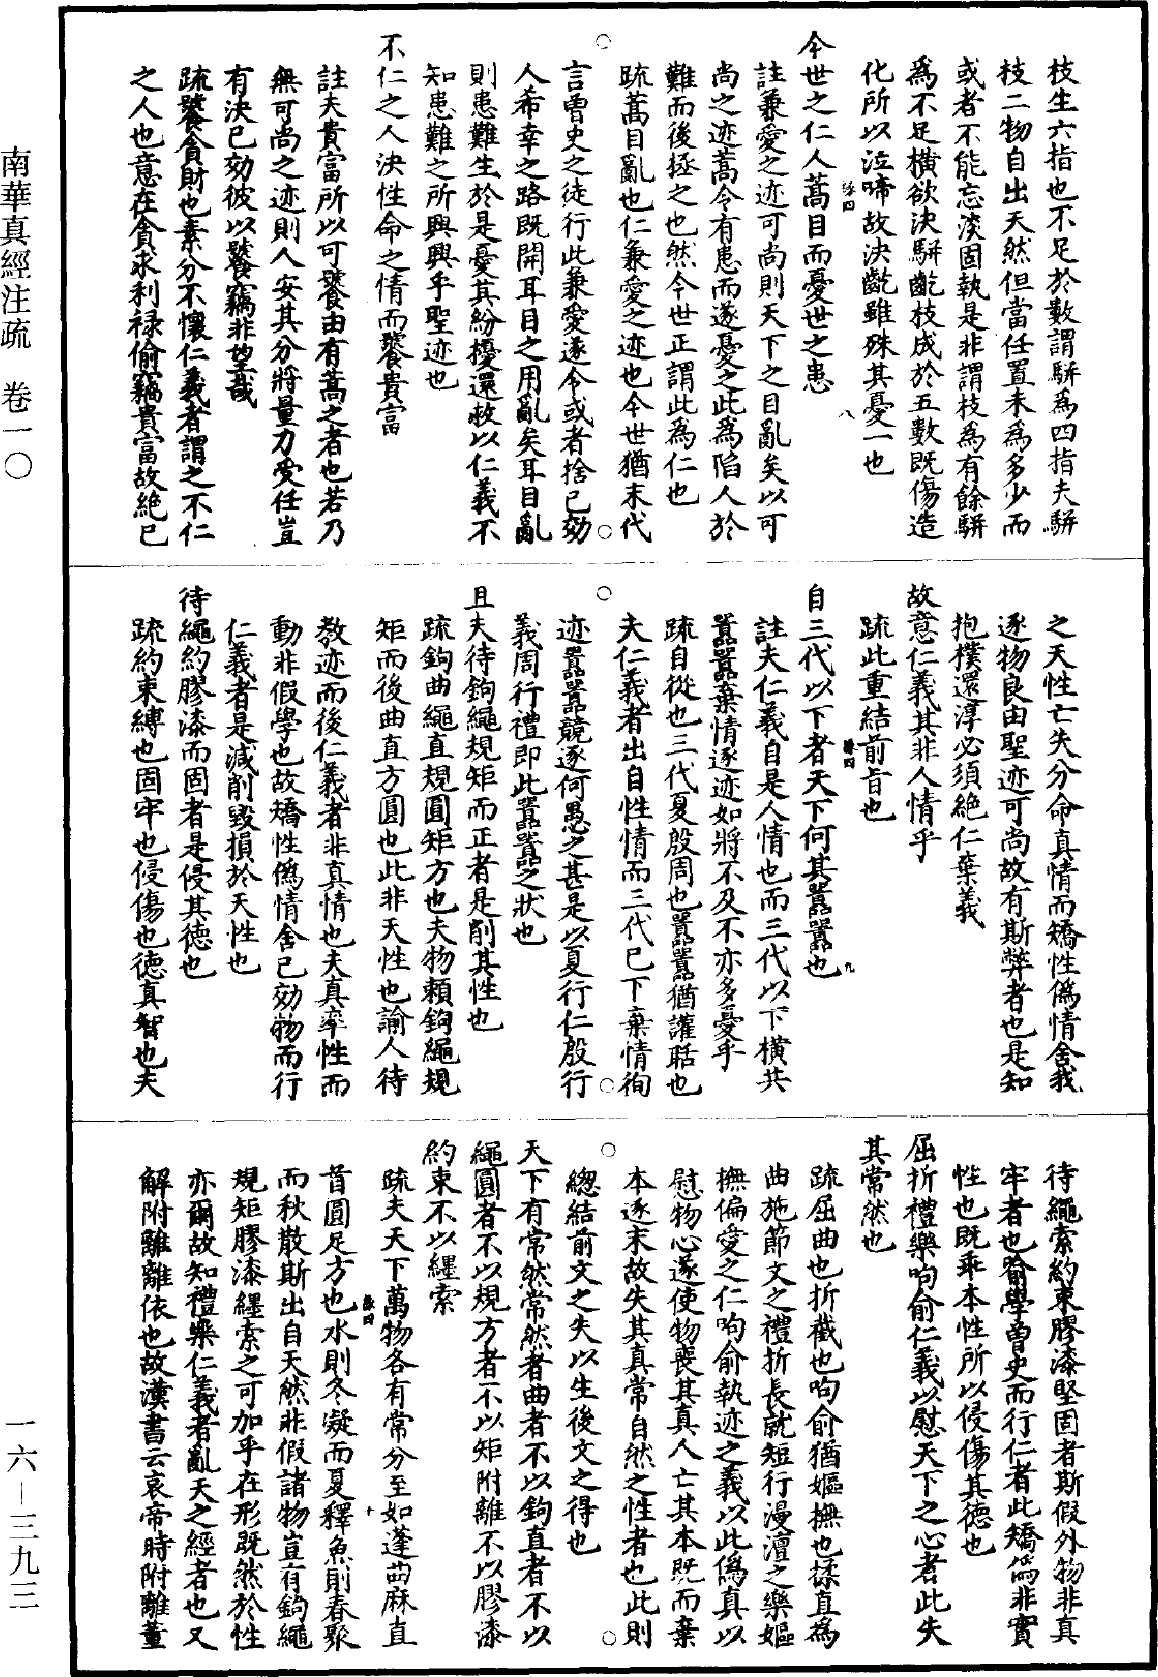 枝生六指也不足於數謂駢為四指夫駢
枝二物自出天然但當任置未為多少而
或者不能忘淡固執是非謂枝為有餘駢
為不足橫欲決駢齕枝成於五數既傷造
化所以泣啼故決齕雖殊其憂一也
今世之仁人蒿目而憂世之患
註兼愛之迹可尚則天下之目亂矣以可
尚之迹蒿令有患而遂憂之此為陷人於
難而後拯之也然今世正謂此為仁也
疏蒿目亂也仁兼愛之迹也今世猶末代
言曾史之徒行此兼愛遂令或者捨己効
人希幸之路既開耳目之用亂矣耳目亂
則患難生於是憂其紛擾還救以仁義不
知患難之所興興乎聖迹也
不仁之人決性命之情而饕貴富
註夫貴富所以可饕由有蒿之者也若乃
無可尚之迹則人安其分將量力受任豈
有決已効彼以饕竊非望哉
疏饕貪財也素分不懷仁義者謂之不仁
之人也意在貪求利祿偷竊貴富故絕已
之天性亡失分命真情而矯性偽情舍我
逐物良由聖迹可尚故有斯弊者也是知
抱樸還淳必須絕仁棄義
故意仁義其非人情乎
疏此重結前旨也
自三代以下者天下何其囂囂也
註夫仁義自是人情也而三代以下橫共
囂囂棄情逐迹如將不及不亦多憂乎
疏自從也三代夏殷周也囂囂猶讙聒也
夫仁義者出自性情而三代已下棄情徇
迹囂囂競逐何愚之甚是以夏行仁殷行
義周行禮即此囂囂之狀也
且夫待鉤繩規矩而正者是削其性也
疏鉤曲繩直規圓矩方也夫物賴鉤繩規
矩而後曲直方圓也此非天性也諭人待
教迹而後仁義者非真情也夫真率性而
動非假學也故矯性偽情舍己効物而行
仁義者是減削毀損於天性也
待繩約膠漆而固者是侵其德也
疏約束縛也固牢也侵傷也德真智也夫
待繩索約束膠漆堅固者斯假外物非真
牢者也喻學曾史而行仁者此矯偽非實
性也既乖本性所以侵傷其德也
屈折禮樂呴俞仁義以慰天下之心者此失
其常然也
疏屈曲也折截也呴俞猶嫗撫也揉直為
曲施節文之禮折長就短行漫澶之樂嫗
撫偏愛之仁呴俞執迹之義以此偽真以
慰物心遂使物喪其真人亡其本既而棄
本逐末故失其真常自然之性者也此則
總結前文之失以生後文之得也
天下有常然常然者曲者不以鉤直者不以
繩圓者不以規方者不以矩附離不以膠漆
約束不以纆索
疏夫天下萬物各有常分至如蓬曲麻直
首圓足方也水則冬凝而夏釋魚則春聚
而秋散斯出自天然非假諸物豈有鉤繩
規矩膠漆纆索之可加乎在形既然於性
亦爾故知禮樂仁義者亂天之經者也又
解附離離依也故漢書云哀帝時附離董
南華真經注疏 卷一〇
一六－三九三